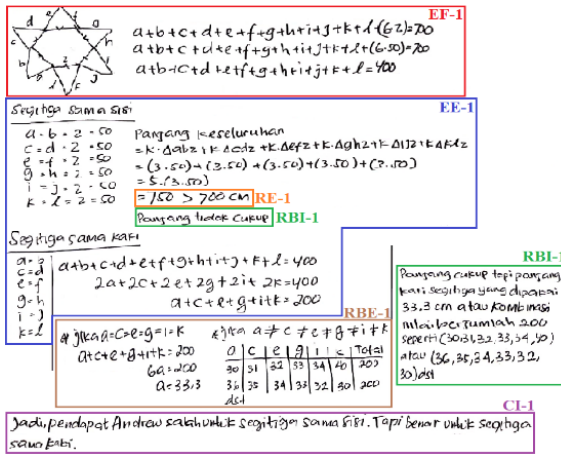 EF-1
a+b+c+d+e+f+g+h+i+j+k+l+(6z)=700
a+b+c+d+e+f+g+h+i+j+k+l+(6.50)=700
a+b+c+d+e+f+g+h+i+j+k+l=400
EE-1
Segitiga sama sisi
a=b=z=50
c=d=z=50
e=f=z=50
g=h=z=50
i=j=z=50
k=l=z=50
Panjang keseluruhan
=k.Δabz+k.Δcdz+k.Δefz+k.Δghz+k.Δijz+k.Δklz
=(3.50)+(3.50)+(3.50)+(3.50)+(3.50)
=5.(3.50)
=750>700 cm
RE-1
Panjang tidak cukup
RBI-1
Segitiga sama kaki
a=b
c=d
e=f
g=h
i=j
k=l
a+b+c+d+e+f+g+h+i+j+k+l=400
2a+2c+2e+2g+2i+2k=400
a+c+e+g+i+k=200
RBE-1
*jika a=c=e=g=i=k
a+c+e+g+i+k=200
6a=200
a=33,3
*jika a≠c≠e≠g≠i≠k
a|c|e|g|i|k|Total
30|31|32|33|34|40|200
36|35|34|33|32|30|200
dst
RBI-1
Panjang cukup tapi panjang
kaki segitiga yang dipakai
33,3 cm atau kombinasi
nilai berjumlah 200
seperti (30,31,32,33,34,40)
atau (36,35,34,33,32,
30) dst
CI-1
Jadi, pendapat Andrew salah untuk segitiga sama sisi. Tapi benar untuk segitiga
sama kaki.